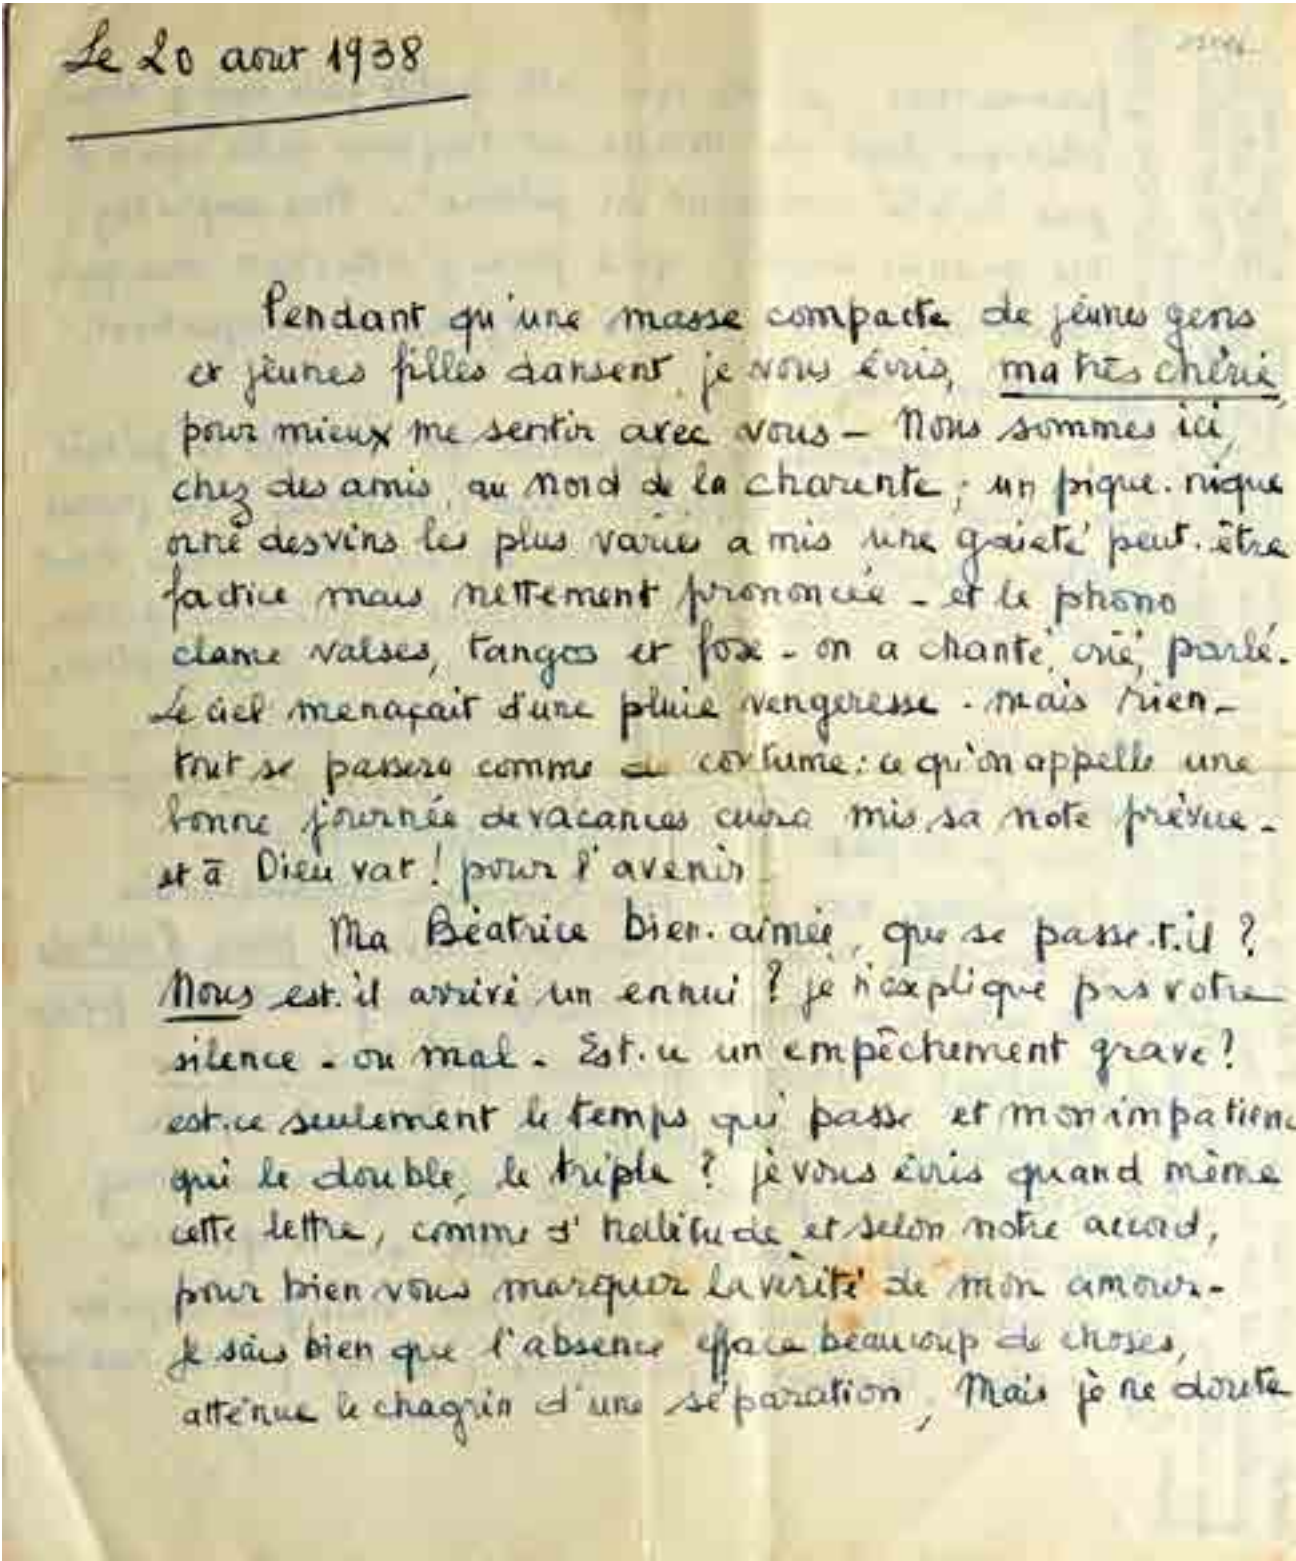 Le 20 aout 1938
Pendant qu'une masse compacte de jeunes gens
et jeunes filles dansent, je vous écris, ma très chérie,
pour mieux me sentir avec vous - Nous sommes ici,
chez des amis, au Nord de la Charente ; un pique-nique
orné des vins les plus variés a mis une gaieté peut-être
factice mais nettement prononcée - et le phono
clame valses, tangos et fox - on a chanté, crié, parlé.
Le ciel menaçait d'une pluie vengeresse. mais rien -
tout se passera comme de coutume : ce qu'on appelle une
bonne journée de vacances aura mis sa note prévue -
et à Dieu vat ! pour l'avenir -
Ma Béatrice bien-aimée, que se passe-t-il ?
Vous est-il arrivé un ennui ? je n'explique pas votre
silence - ou mal - Est-ce un empêchement grave ?
est-ce seulement le temps qui passe et mon impatienc
qui le double, le triple ? je vous écris quand même
cette lettre, comme d'habitude et selon notre accord,
pour bien vous marquer la vérité de mon amour -
Je sais bien que l'absence efface beaucoup de choses,
atténue le chagrin d'une séparation, Mais je ne doute